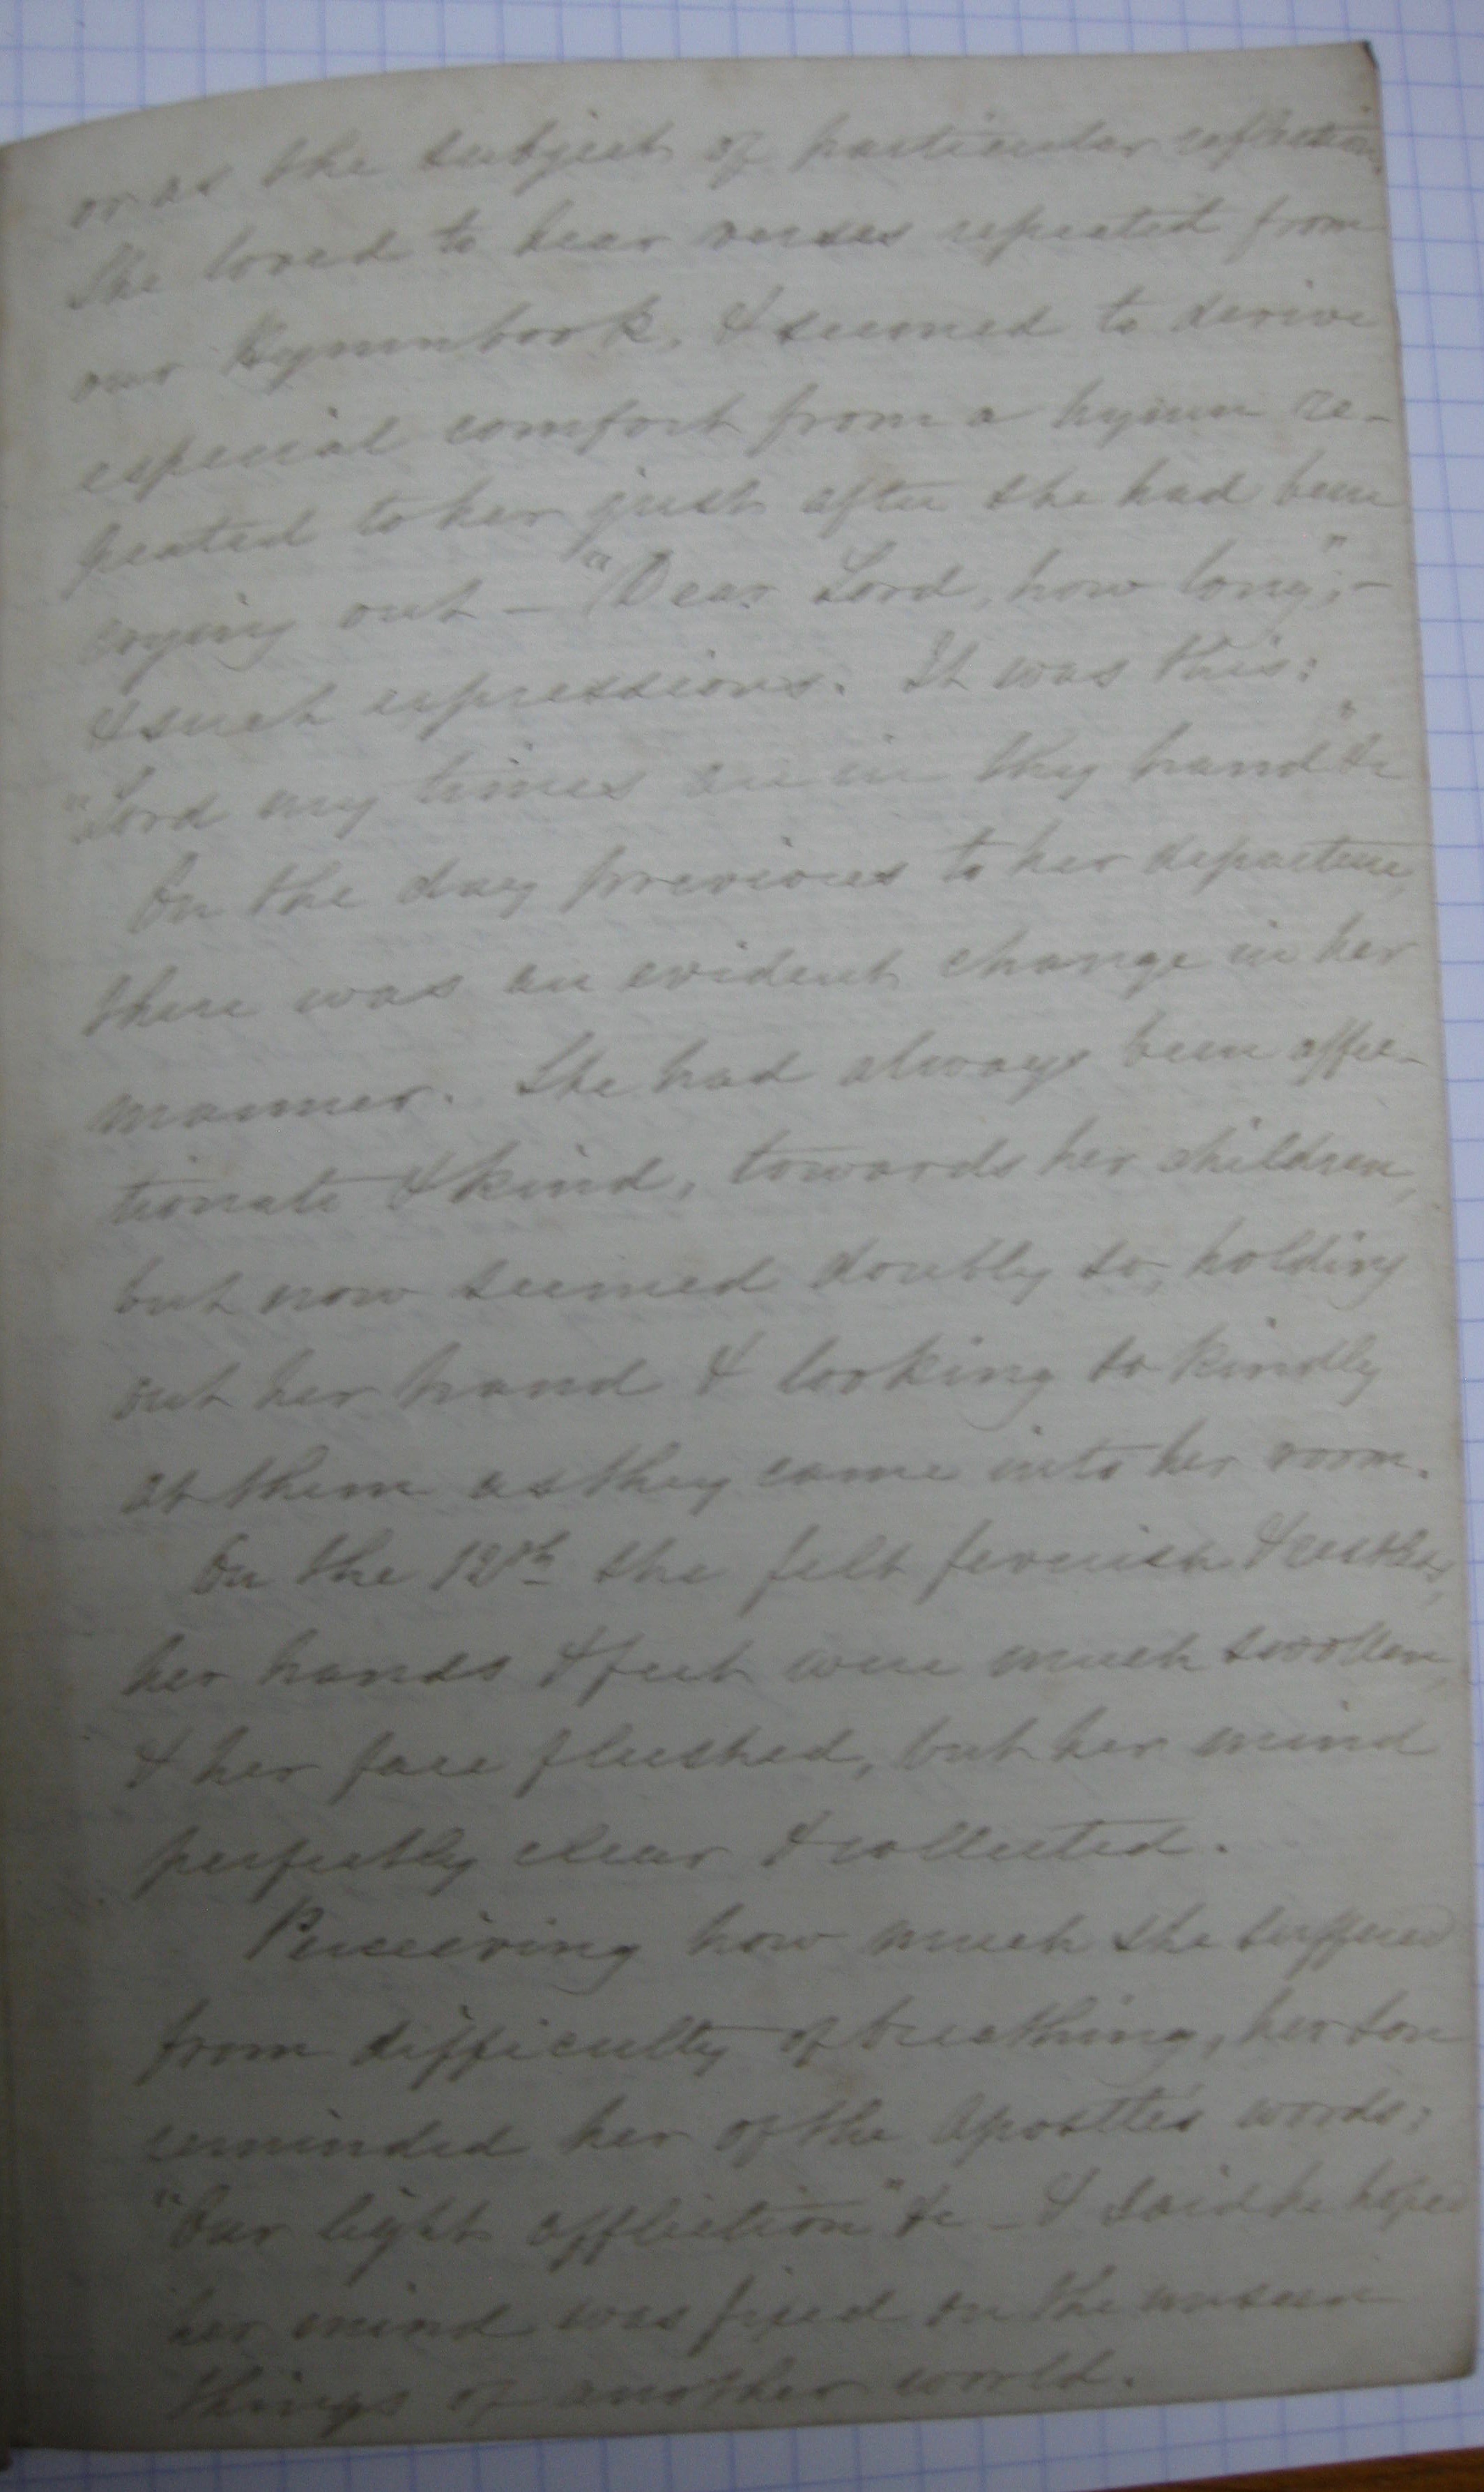 or as the subject of particular reflection.
She loved to hear verses repeated from
our Hymnbook, & seemed to derive
especial comfort from a hymn re-
peated to her just after she had been
crying out – "Dear Lord, how long", –
& such expressions. It was this:
"Lord my times are in thy hand" &c
On the day previous to her departure,
there was an evident change in her
manner. She had always been affec-
tionate & kind, towards her children,
but now seemed doubly so, holding
out her hand & looking so kindly
at them as they came into her room.
On the 12th she felt feverish & restless,
her hands & feet were much swollen,
& her face flushed, but her mind
perfectly clear & collected.
Perceiving how much she suffered
from difficulty of breathing, her son
reminded her of the Apostle's words:
"Our light affliction" &c – & said he hoped
her mind was fixed on the unseen
things of another world.